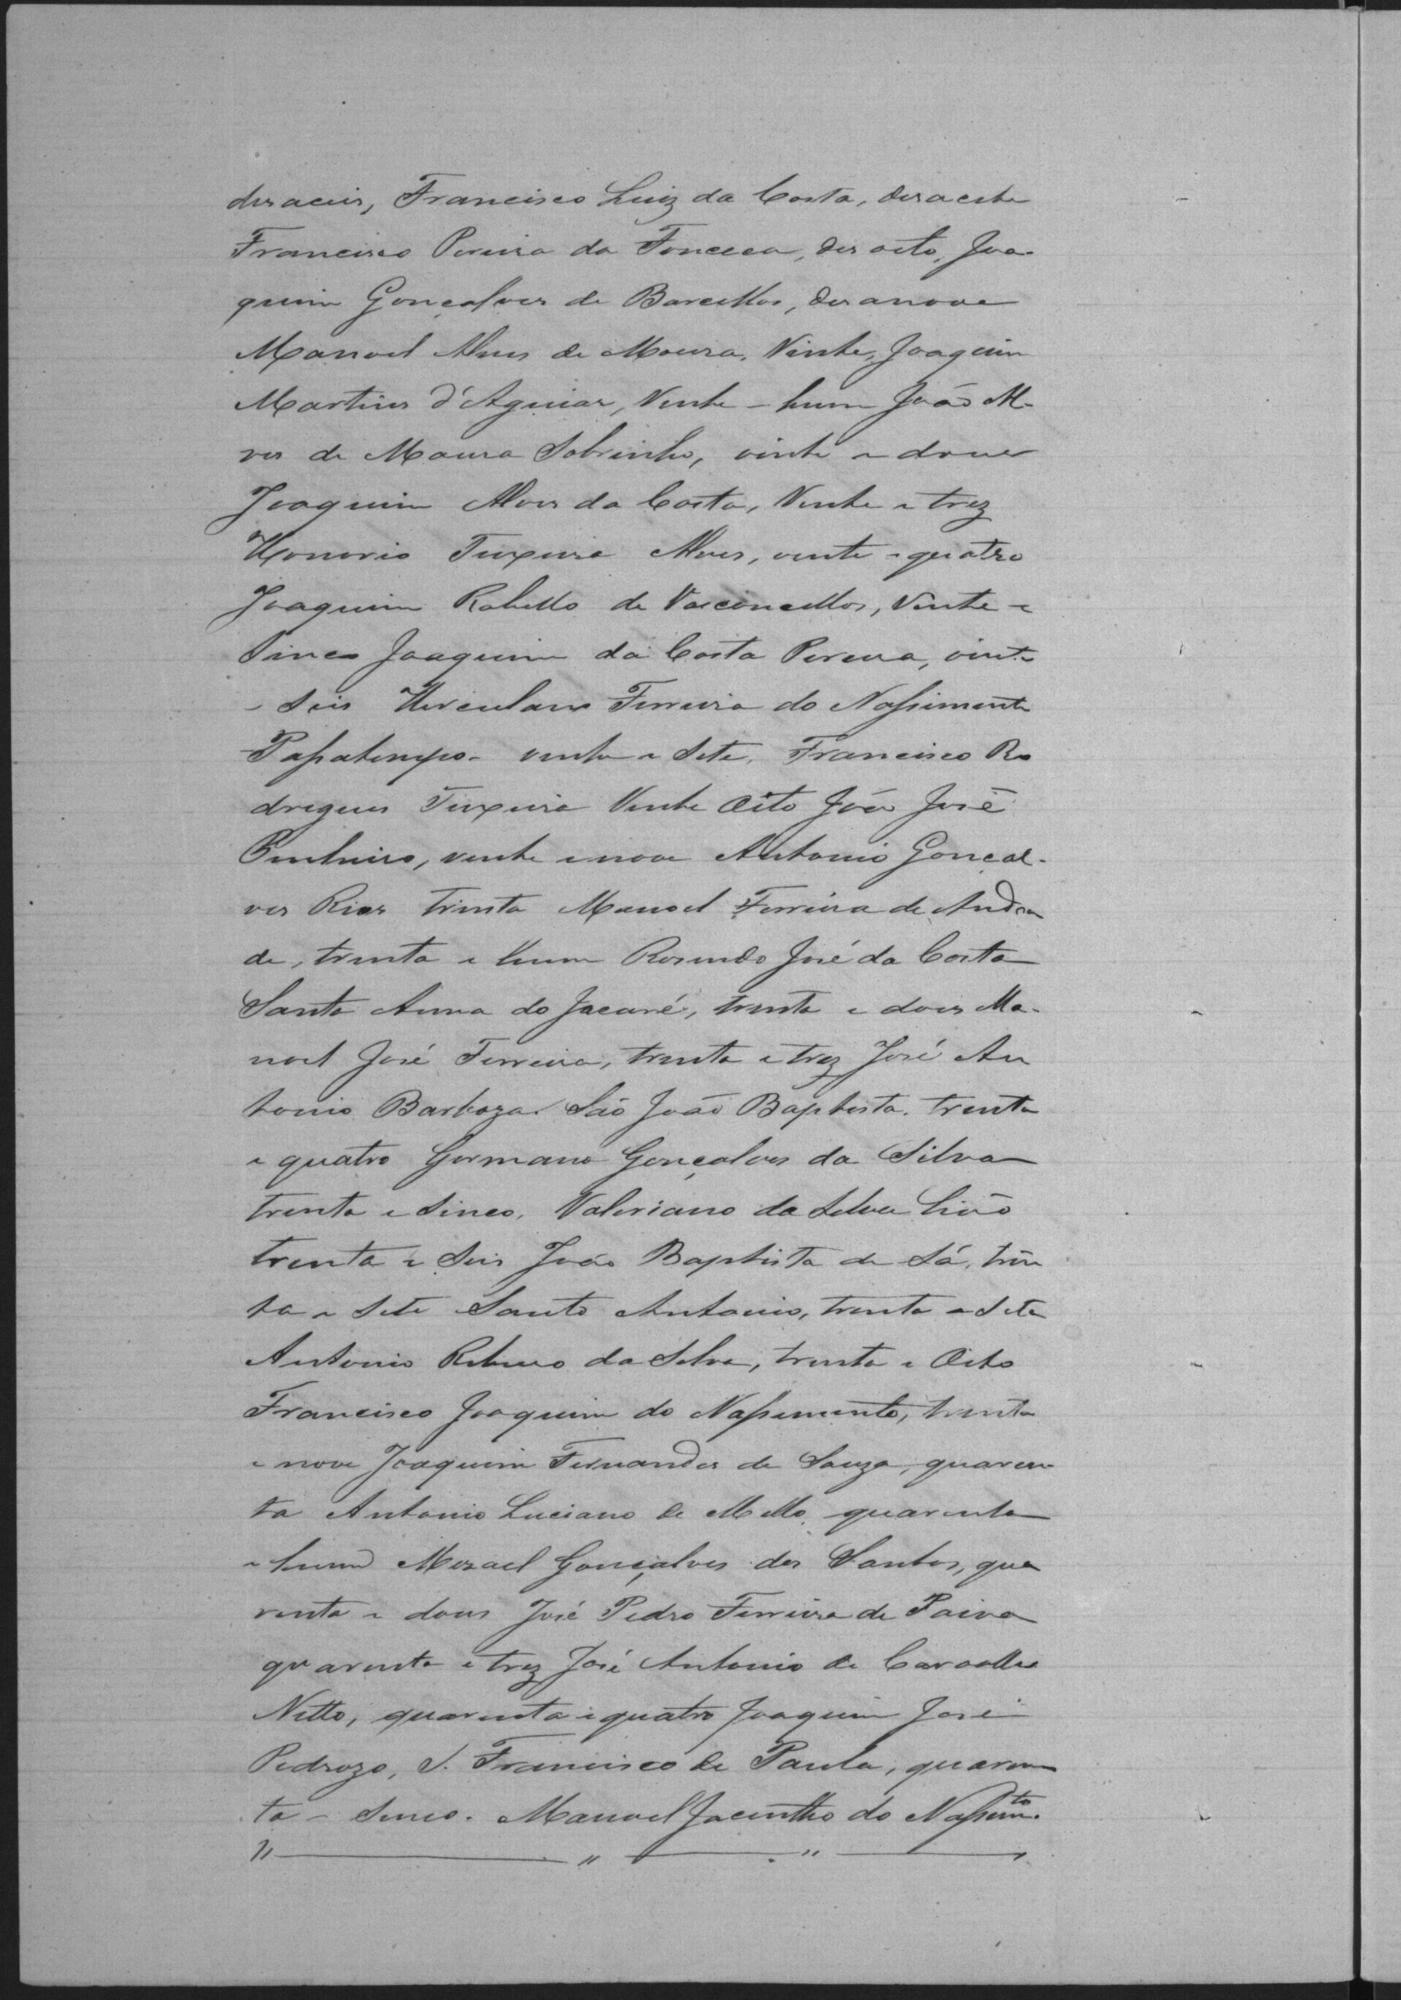 desaceis, Francisco Luiz da Costa, desacete
Francisco Pereira da Fonceca, des oito, Joa-
quim Gonçalves de Barcellos, desanove
Manoel Alves de Moura, Vinte, Joaquim
Martins d'Aguiar, Vinte - hum João Al-
ves de Moura Sobrinho, vinte e dous
Joaquim Alves da Costa, Vinte e trez
Honorio Teixeira Alves, vinte e quatro
Joaquim Rabello de Vasconcellos, Vinte e
Sinco Joaquim da Costa Pereira, vinte
e Seis Herculano Ferreira do Nassimento
Passatempo - vinte e Sete, Francisco Ro
drigues Teixeira Vinte Oito João José
Pinheiro, vinte e nove Antonio Gonçal-
ves Rios trinta Manoel Ferreira de Andra
de, trinta e hum Rosendo José da Costa
Santa Anna do Jacaré, trinta e dous Ma-
noel José Ferreira, trinta e trez José An
tonio Barboza São João Baptista. trinta
e quatro Germano Gonçalves da Silva
trinta e Sinco, Valeriano da Silva Lião
trinta e Seis João Baptista de Sá, trin
ta e Sete Santo Antonio, trinta e Sete
Antonio Ribeiro da Silva, trinta e Oito
Francisco Joaquim do Nassimento, trinta
e nove Joaquim Fernandes de Souza, quaren-
ta Antonio Luciano de Mello, quarenta
e hum Mizael Gonçalves dos Santos, qua
renta e dous José Pedro Ferreira de Paiva
quarenta e trez José Antonio de Carvalho
Netto, quarenta e quatro Joaquim José
Pedrozo, S. Francisco de Paula, quaren
ta - Sinco. Manoel Jacintho do Nassimto.
" " "